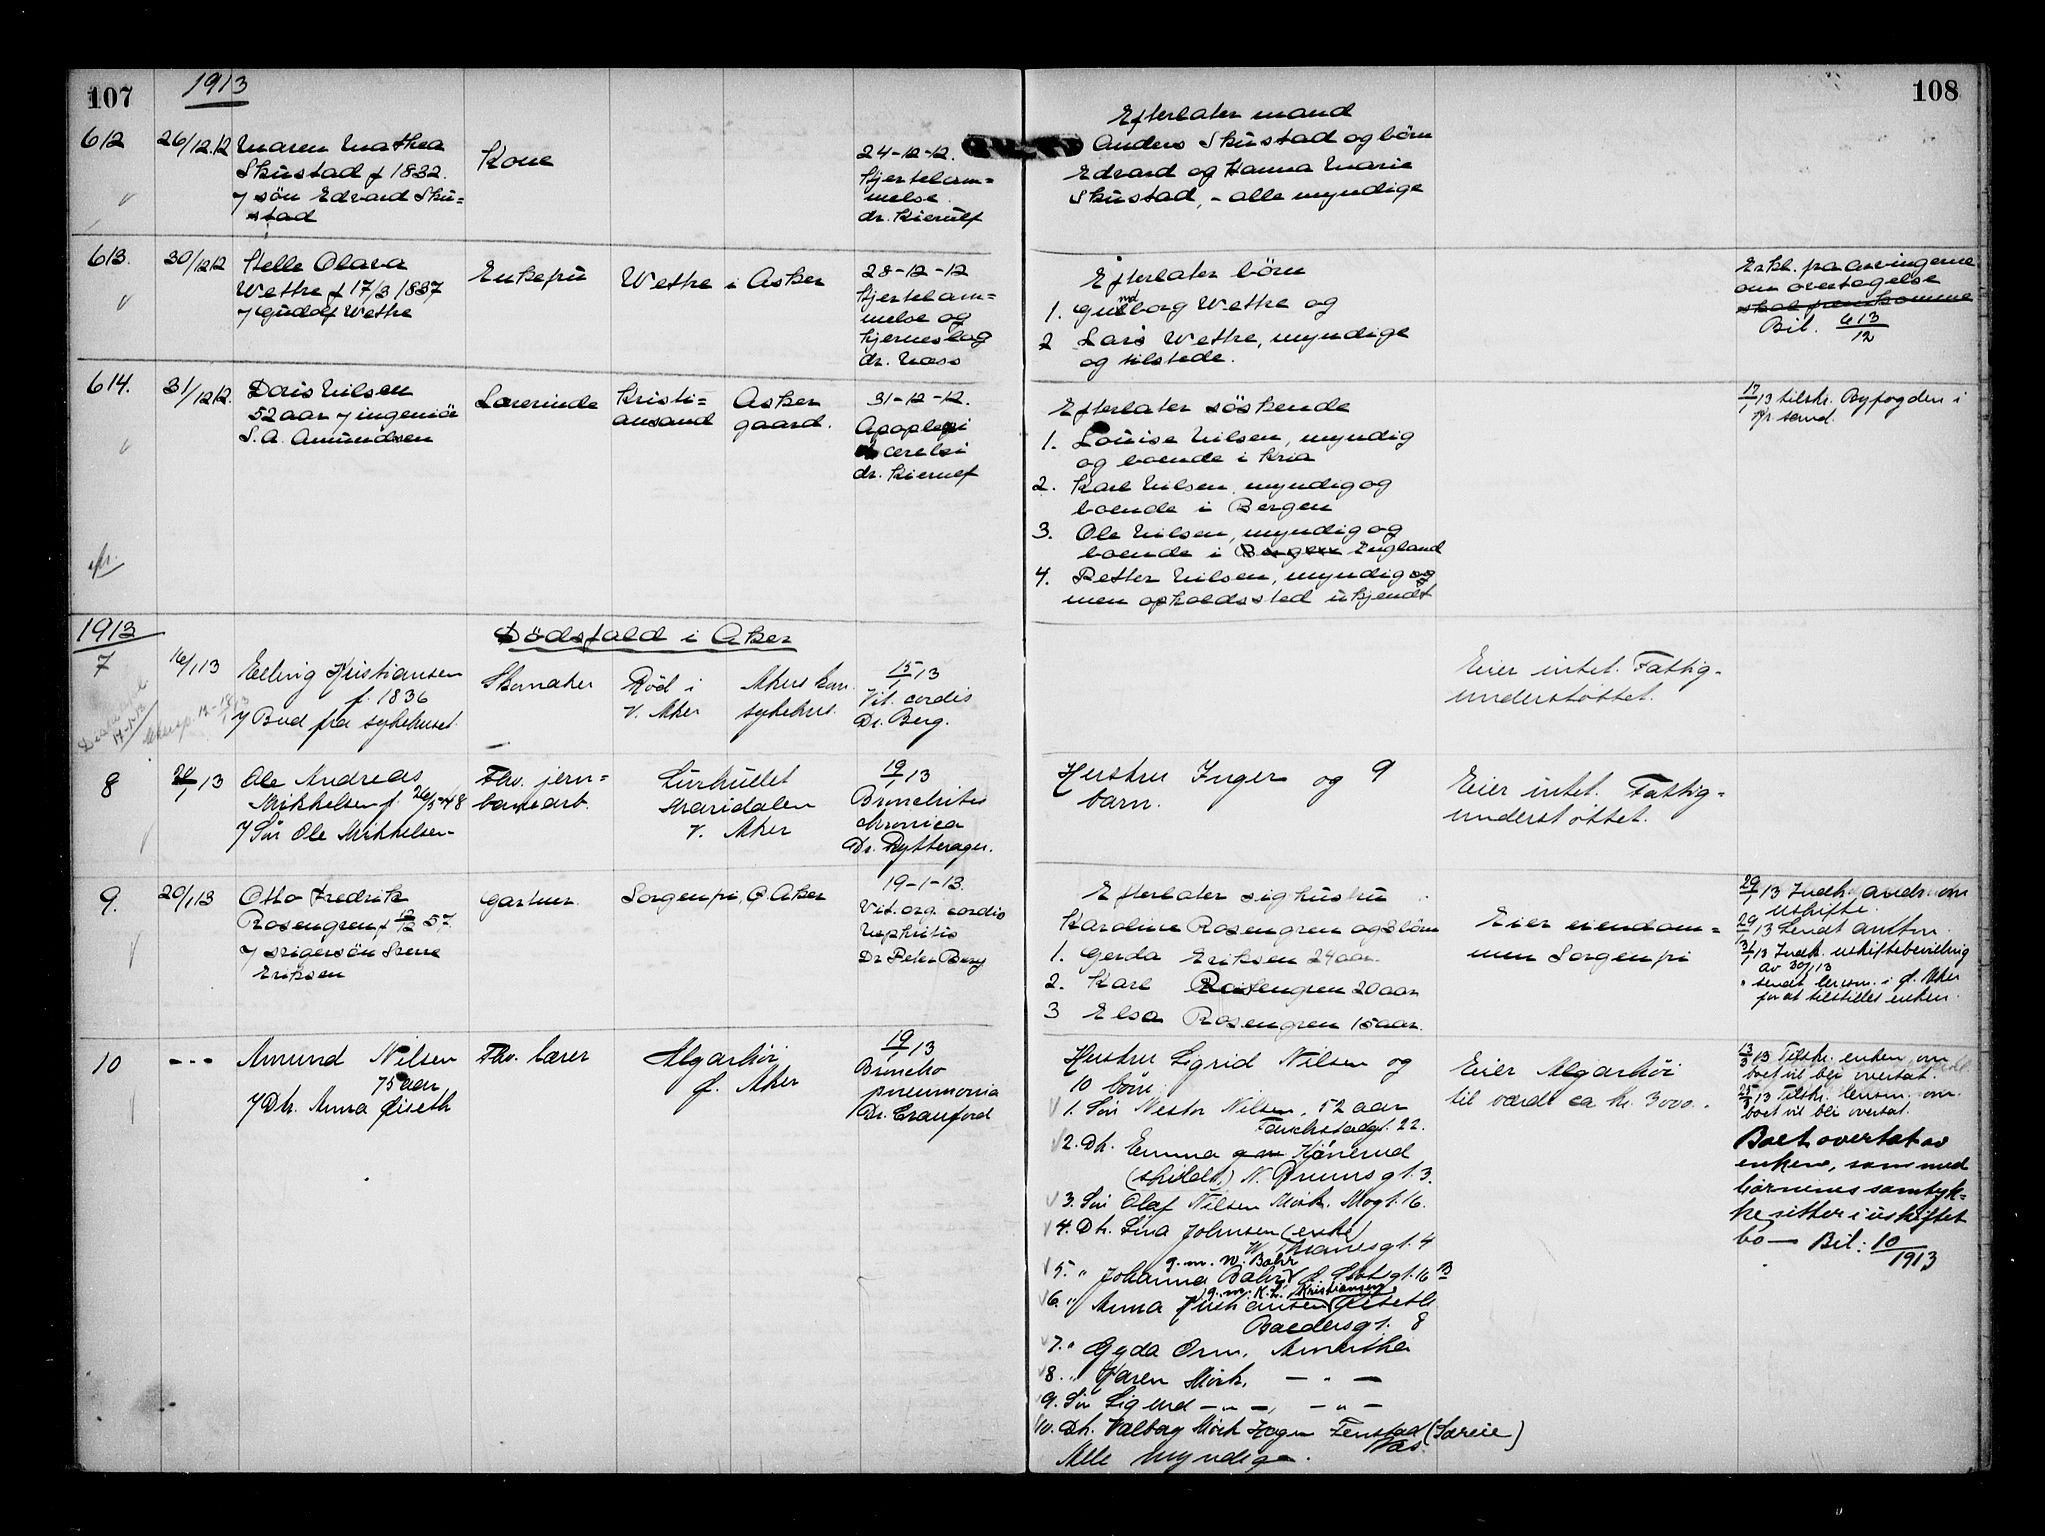 107
1913
108
612
26/12.12
Maren Mathea
Skustad f 1832.
v/ sön Edvard Sku=
stad
Kone
24-12-12.
Hjertelam=
melse
dr. Kierulf
Efterlater mand
Anders Skustad og börn
Edvard og Hanna Marie
Skustad, - alle myndige
613.
30/12 12
Helle Olava
Wettre f 17/3 1837
v/ Gudolf Wettre
Enkefru
Wettre i Asker
28-12-12
Hjertelam=
melse og
hjerneslag
dr. Næss
Efterlater börn
1. Gudborg Wettre og
2 Lars Wettre, myndige
og tilstede.
Erkl. fra arvingerne
om overtagelse
skal fremkomme
Bil. 613/12
614.
31/12 12.
Doris Nilsen
52 aar v/ ingeniör
S. A. Amundsen
Lærerinde
Kristi=
ansand
Asker
gaard.
31-12-12.
Apopleksi
cerebri
dr. Kierulf
Efterlater söskende
1. Louise Nilsen, myndig
og boende i Kria
2. Karl Nilsen myndig og
boende i Bergen
3. Ole Nilsen, myndig og
boende i Bergen England
4. Petter Nilsen, myndig og
men opholdssted ukjendt
17/1 13 tilskr. Byfogden i
Kr.sand.
1913
Dödsfald i Aker
7
16/1 13
Elling Kristiansen
f. 1836
v/ Bud fra sykehuset
Skomaker
Röd i
V. Aker
Akers kom.
sykehus.
15/1 13
Vit. cordis
Dr. Berg.
Eier intet. Fattig-
understöttet.
8
20/1 13
Ole Andreas
Mikkelsen f. 26/5-48
v/ Sön Ole Mikkelsen
Fhv. jern=
banearb.
Maridalen
V. Aker
19/1 13
Bronchitis
chronica
Dr. Rytterager.
Hustru Inger og 9
barn.
Eier intet. Fattig=
understöttet.
9.
20/1 13
Otto Fredrik
Rosengren f 12/12 57.
v/ svigersön
Eriksen
Gartner
Sorgenfri, Ö. Aker
19-1-13.
Vit. org. cordis
Nephritis
Dr Peter Berg
Efterlater sig hustru
Karoline Rosengren og 3 börn
1. Gerda Eriksen 24 aar.
2. Karl Rosengren 20 aar
3 Elsa Rosengren 15 aar.
Eier eiendom=
men Sorgenfri
29/1 13 Indk. andr. om
uskifte.
29/1 13 Sendt amtm.
31/1 13 Indk. uskiftebevilling
av 30/1 13
" sendt lensm. i Ö. Aker
for at tilstilles enken.
10
- - -
Amund Nilsen
75 aar
v/ Dtr. Anna Öiseth
Fhv. lærer
Algarhöi
Ö. Aker
19/1 13
Broncho
pneumonia
Dr. Cranford
Hustru Sigrid Nilsen og
10 börn:
1. Sön Nestor Nilsen. 52 aar
Fauchaldsgt. 22.
2. Dtr. Emma g. m.
(skildt) N. Bruunsgt. 3.
3. Sön Olaf Nilsen Mork. Mogt. 16.
4. Dtr. Lina Johnsen (enke)
W. Thranesgt. 4
g. m. W. Bahr
5. " Johanna Bahr Ö. Slotsgt. 16 B
g. m. K. L. Kristiansen
6. " Anna Kristiansen Öiseth
Baldersgt. 8
7. " Gyda Orm. Amerika
8. " Karen Mork, - " -
9. Sön Sigurd - " -, - " -
10. Dtr. Valborg Mork Hagen Fenstad
Alle myndige.
Eier Algarhöi
til værdi ca kr. 3000.
13/3 13 Tilskr. enken om
boet vil bli overtat.
25/3 13 Tilskr. lensm. om
boet vil bli overtat.
Boet overtat av
enken, som med
börnenes samtyk=
ke sitter i uskiftet
bo - Bil: 10/1913